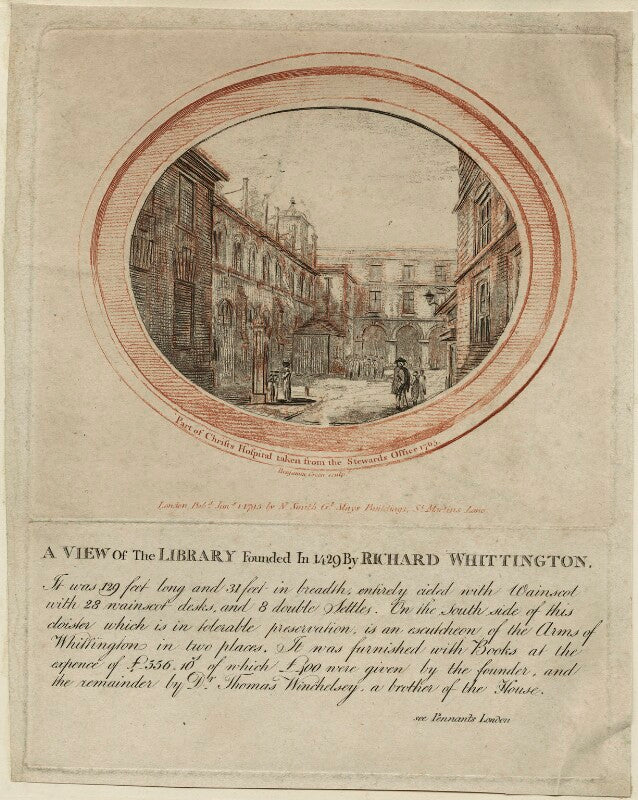 Part of Christs Hospital taken from the Stewards Office 1765.
Benjamin Green sculp.
London Pub.d Jan.y 1 1795 by N. Smith G.t Mays Buildings, S.t Martins Lane
A VIEW Of The LIBRARY Founded In 1429 By RICHARD WHITTINGTON.
It was 129 feet long and 31 feet in breadth, entirely cieled with Wainscot
with 28 wainscot desks, and 8 double Settles. On the South side of this
cloister which is in tolerable preservation, is an escutcheon of the Arms of
Whittington in two places. It was furnished with Books at the
expence of £.556.10.s of which £.400 were given by the founder, and
the remainder by D.r Thomas Winchelsey, a brother of the House.
see Pennants London